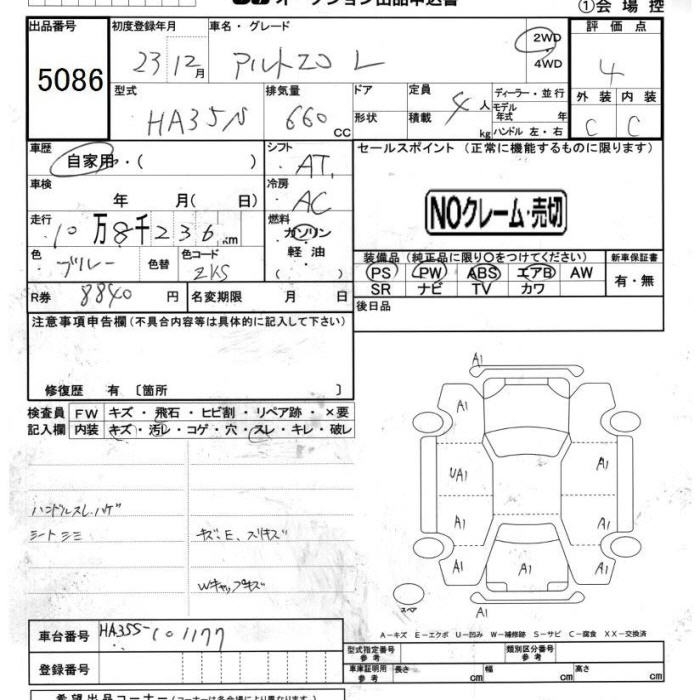 オークション出品申込書
①会場控
出品番号 初度登録年月 車名・グレード 評価点
5086 23 12月 アルトエコ L 2WD 4WD 4
型式 排気量 ドア 定員 ディーラー・並行 外装 内装
HA35S 660cc 形状 積載 4人 kg モデル年式 年 ハンドル 左・右 C C
車歴 シフト セールスポイント (正常に機能するものに限ります)
自家用・( ) AT
車検 冷房
年 月( 日) AC
NOクレーム・売切
走行 燃料
10万8千236km ガソリン
色 色替 色コード 軽油
ブルー ZKS ( )
装備品(純正品に限り○をつけてください) 新車保証書
PS PW ABS エアB AW 有・無
SR ナビ TV カワ
R券 8840円 名変期限 月 日
後日品
注意事項申告欄(不具合内容等は具体的に記入して下さい)
修復歴 有 〔箇所 〕
検査員 FW キズ・飛石・ヒビ割・リペア跡・×要
記入欄 内装 キズ・汚レ・コゲ・穴・スレ・キレ・破レ
A1
A1
UA1 A1
ハンドルスレ、ハゲ
A1 A1
シートシミ キズ、E、スリキズ
A1 A1 A1
Wキャップキズ
スペア
A1
A-キズ E-エクボ U-凹み W-補修跡 S-サビ C-腐食 XX-交換済
車台番号 HA35S-101177
型式指定番号 参考 類別区分番号 参考
登録番号
車庫証明用 参考 長さ cm 幅 cm 高さ cm
希望出品コーナー